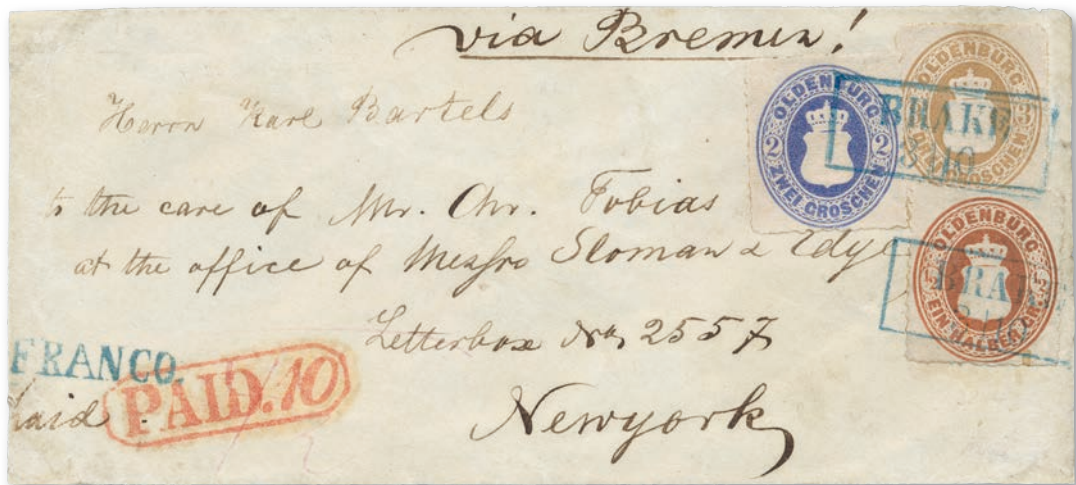 via Bremen!
Herrn Karl Bartels
to the care of Mr. Chr. Tobias
at the office of Messrs Sloman & Edye
Letterbox No 2557
Newyork
FRANCO
paid
PAID.10
OLDENBURG
2 2
ZWEI GROSCHEN
OLDENBURG
3
DREI GROSCHEN
BRAKE
3/10
OLDENBURG
EIN HALBER GR.
BRAKE